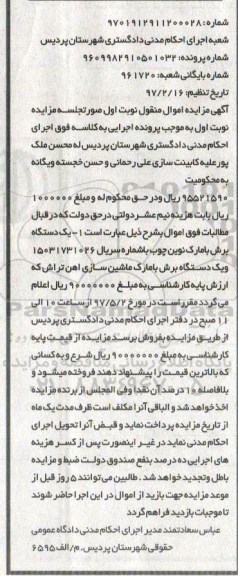 شماره: ۹۷۰۱۹۱۲۹۱۱۲۰۰۰۲۸
شعبه اجرای احکام مدنی دادگستری شهرستان پردیس
شماره پرونده: ۹۶۰۹۹۸۲۹۱۰۵۰۱۰۳۲
شماره بایگانی شعبه: ۹۶۱۷۲۰
تاریخ تنظیم: ۹۷/۲/۱۶
آگهی مزایده اموال منقول نوبت اول صورتجلسه مزایده
نوبت اول به موجب پرونده اجرایی به کلاسه فوق اجرای
احکام مدنی دادگستری شهرستان پردیس له محسن ملک
پور علیه کابینت سازی علی رحمانی و حسن خجسته و یگانه
به محکومیت
۹۵۵۲۱۵۹۰ ریال ودر حق محکوم له و مبلغ ۱۰۰۰۰۰۰
ریال بابت هزینه نیم عشر دولتی در حق دولت که در قبال
مطالبات فوق اموال بشرح ذیل عبارت است ۱- یک دستگاه
برش بامارک نوین چوب باشماره سریال ۱۵۰۳۱۷۳۱۰۲۶
ویک دستگاه برش بامارک ماشین سازی اهن تراش که
ارزش پایه کارشناسی به مبلغ ۹۰۰۰۰۰۰۰ ریال اعلام
می گردد مقرر است در مورخ ۹۷/۵/۲ از ساعت ۱۰ الی
۱۱ صبح در دفتر اجرای احکام مدنی دادگستری پردیس
از طریق مزایده بفروش برسد مزایده از قیمت پایه
کارشناسی به مبلغ ۹۰۰۰۰۰۰۰ ریال شروع و به کسانی
که بالاترین قیمت را پیشنهاد دهند فروخته میشود و
بلافاصله ۱۰ درصد آن نقدا وفی المجلس از برنده مزایده
اخذ خواهد شد و الباقی آنرا مکلف است ظرف مدت یک ماه
از تاریخ مزایده پرداخت نماید و قبض آنرا تحویل اجرای
احکام مدنی نماید در غیر اینصورت پس از کسر هزینه
های اجرایی ده درصد بنفع صندوق دولت ضبط و مزایده
باطل وتجدید خواهد شد. طالبین می توانند ۵ روز قبل از
موعد مزایده جهت بازدید از اموال در این اجرا حاضر شوند
تا موجبات بازدید فراهم گردد
عباس سعادتمند مدیر اجرای احکام مدنی دادگاه عمومی
حقوقی شهرستان پردیس. م/الف ۶۵۹۵